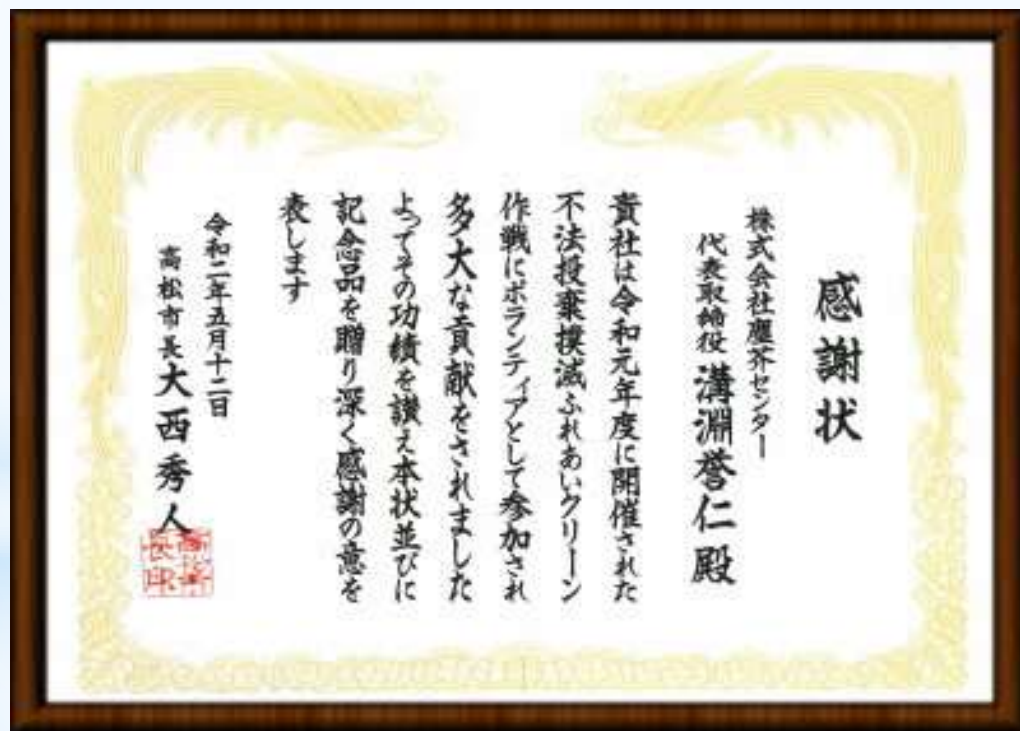 感謝状
株式会社塵芥センター
代表取締役 溝淵誉仁 殿
貴社は令和元年度に開催された
不法投棄撲滅ふれあいクリーン
作戦にボランティアとして参加され
多大な貢献をされました
よってその功績を讃え本状並びに
記念品を贈り深く感謝の意を
表します
令和二年五月十二日
高松市長 大西秀人
高松市
長印